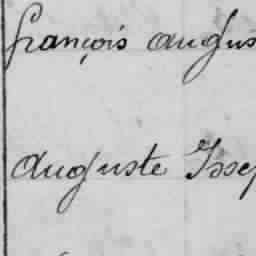 françois augus
auguste Jose